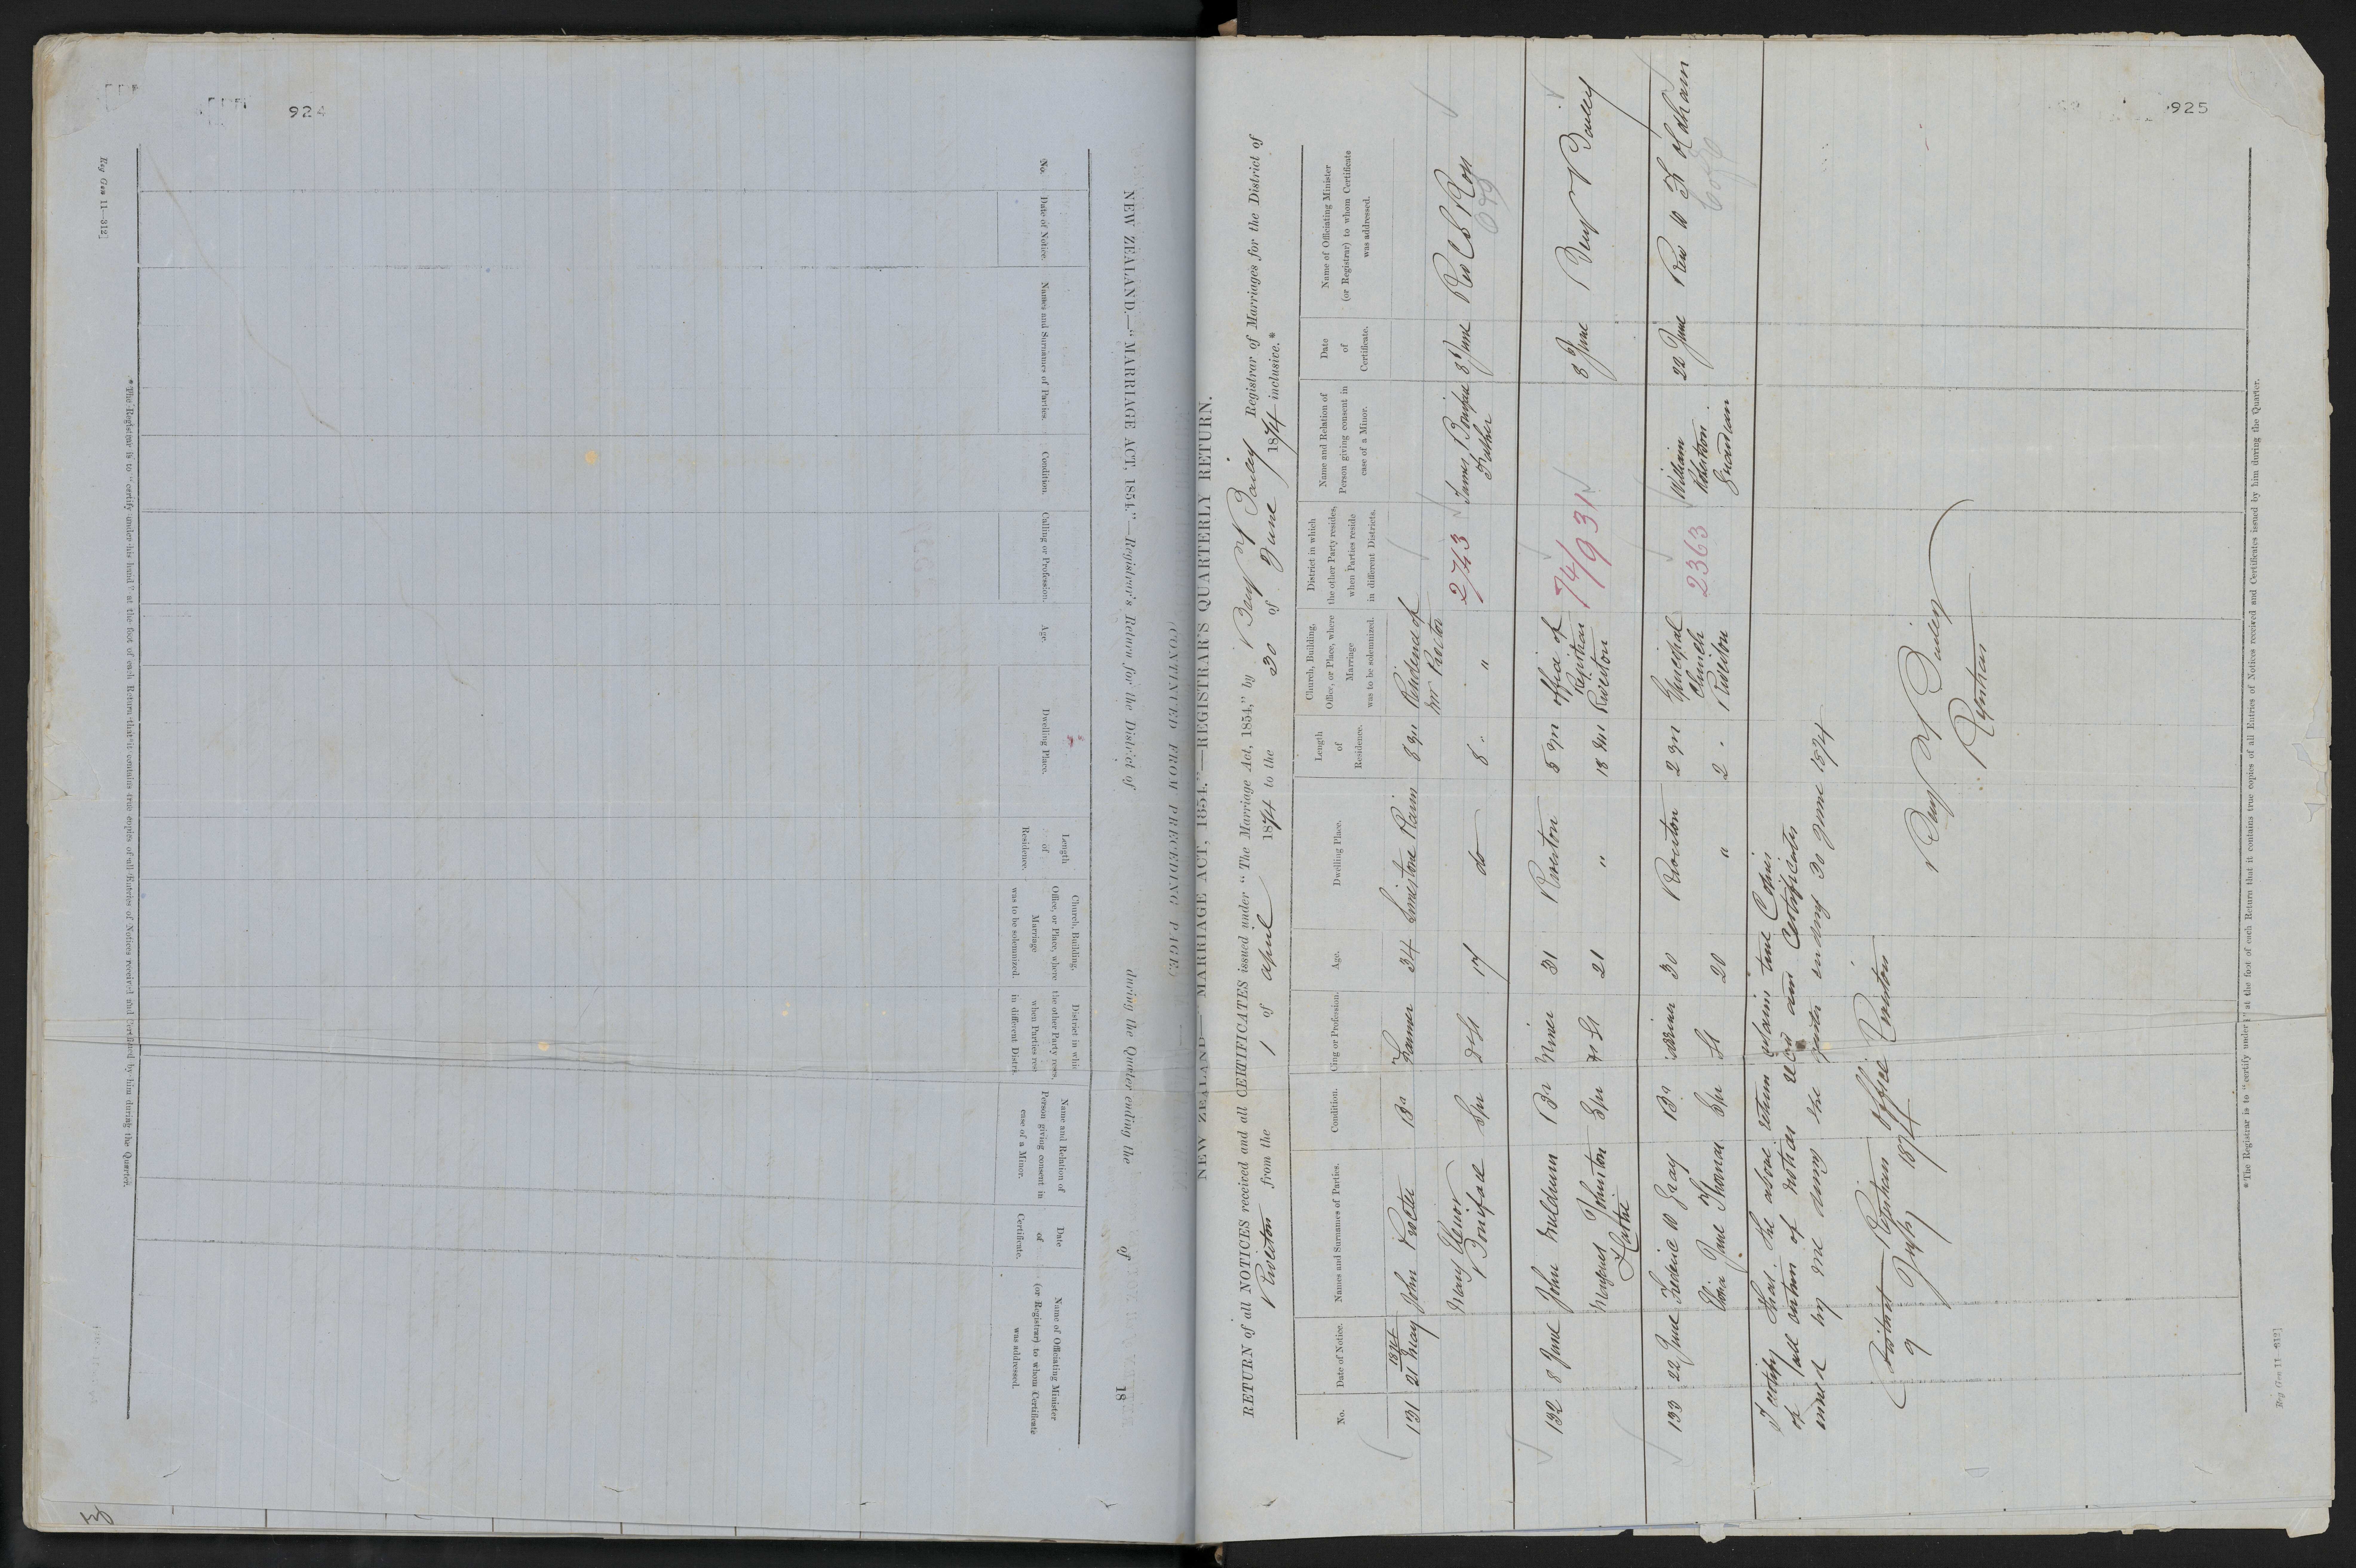 924
NEW ZEALAND.—"MARRIAGE ACT, 1854."—Registrar's Return for the District of during the Quarter ending the of 18
No.
Date of Notice.
Names and Surnames of Parties.
Condition.
Calling or Profession.
Age.
Dwelling Place.
Length
of
Residence.
Church, Building,
Office, or Place, where
Marriage
was to be solemnized.
District in whic
the other Party resides,
when Parties resi
in different Distri
Name and Relation of
Person giving consent in
case of a Minor.
Date
of
Certificate.
Name of Officiating Minister
(or Registrar) to whom Certificate
was addressed.
*The Registrar is to "certify under his hand" at the foot of each Return that it contains true copies of all Entries of Notices received and Certified by him during the Quarter.
Reg Gen 11—312]
925
(CONTINUED FROM PRECEDING PAGE)
NEW ZEALAND—"MARRIAGE ACT, 1854."—REGISTRAR'S QUARTERLY RETURN.
RETURN of all NOTICES received and all CERTIFICATES issued under "The Marriage Act, 1854," by Benj Bailey Registrar of Marriages for the District of
Riverton from the 1 of April 1874 to the 30 of June 1874 inclusive.*
No.
Date of Notice.
Names and Surnames of Parties.
Condition.
Calling or Profession.
Age.
Dwelling Place.
Length
of
Residence.
Church, Building,
Office, or Place, where
Marriage
was to be solemnized.
District in which
the other Party resides,
when Parties reside
in different Districts.
Name and Relation of
Person giving consent in
case of a Minor.
Date
of
Certificate.
Name of Officiating Minister
(or Registrar) to whom Certificate
was addressed.
1874
131 21 May John Proctor Bar Farmer 34 Limestone Plain 8 yrs Residence of
Mr Proctor
Mary Elenor Spr 17 do 8 " " 2743 James Boniface 3 June Rev C S Ross
Boniface Father
132 8 June John Muldrum Bar Miner 31 Riverton 5 yrs office of 74/931 8 June Benj Bailey
Registrar
Margaret Johnston Spr 21 " 18 yrs Riverton
Hastie
133 22 June Frederic W Gray Bar Mariner 30 Riverton 2 yrs Episcopal 2363 William 22 June Rev W F Oldham
Church
Jane Thomas Spr 20 " 2 " Riverton Guardian
I certify that the above return contain true Copies
of all entries of notices and Certificates
issued by me during the quarter ending 30 June 1874
District Registrars office Riverton
9 July 1874
Benj Bailey
Registrar
*The Registrar is to "certify under " at the foot of each Return that it contains true copies of all Entries of Notices received and Certificates issued by him during the Quarter.
Reg Gen 11—312]